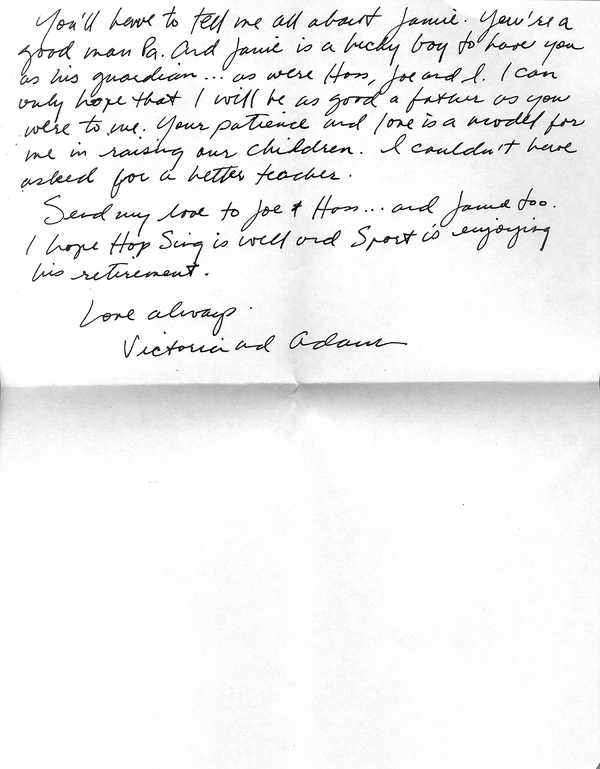 You'll have to tell me all about Jamie. You're a
good man Pa. And Jamie is a lucky boy to have you
as his guardian... as were Hoss, Joe and I. I can
only hope that I will be as good a father as you
were to me. Your patience and love is a model for
me in raising our children. I couldn't have
asked for a better teacher.
Send my love to Joe & Hoss... and Jamie too.
I hope Hop Sing is well and Sport is enjoying
his retirement.
Love always
Victoria and Adam